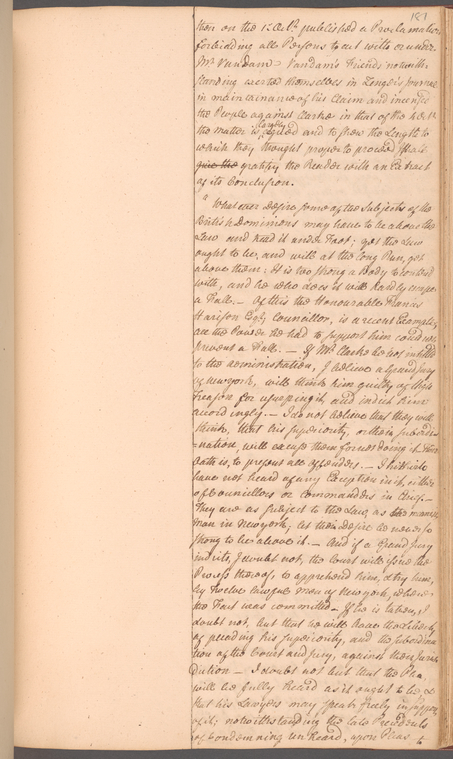 181
then on the 1st Octr. published a Proclamation
forbidding all Persons to act with or under
Mr Vandam = Vandams Friends notwith-
standing exerted themselves in Zengers Journal
in maintainance of his Claim and incensed
the People against Clarke in that of the
the matter is largely argued and to shew the Length to
which they thought proper to proceed I shall
give the gratify the Reader with an Extract
of its Conclusion.
" Whatever Desire some of the Subjects of the
British Dominions may have to be above the
Law and tread it under Foot; yet the Law
ought to be, and will at the long Run, get
above them: It is too strong a Body to contend
with, and he who does it will hardly escape
a Fall. — Of this the Honourable Francis
Harison Esqr. Councillor, is a recent Example,
all the Power he had to support him could not
prevent a Fall. — If Mr. Clarke be not intitled
to the administration, I believe a Grand Jury
of New york, will think him guilty of High
Treason for usurping it and indict him
accordingly. — I do not believe that they will
think, that his superiority, or their subordi-
=nation, will excuse them for not doing it. Their
Oath is, to present all Offenders. — I hitherto
have not heard of any Exception in it, either
of Councillors or Commanders in Chief. —
They are as subject to the Law, as the meanest
man in New york; let their Desire be never so
strong to be above it. — And if a Grand Jury
indicts, I doubt not, the Court will issue the
Process thereof, to apprehend him, & try him,
by Twelve lawful men of New york, where
the Fact was committed — If he is taken, I
doubt not, but that he will have the Liberty
of pleading his superiority, and the subordina
tion of the Court and Jury, against their Juris
diction — I doubt not but that the Plea
will be fully heard as it ought to be, &
that his Lawyers may speak freely in support
of it; notwithstanding the late Presidents
of Condemning unheard, upon Pleas to